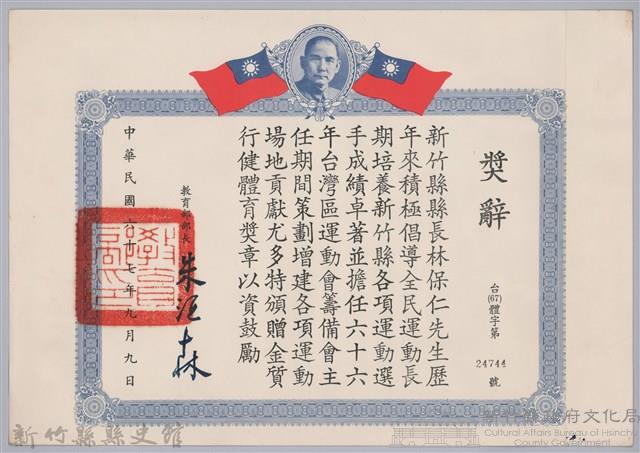 獎辭
台(67)體字第 24744 號
新竹縣縣長林保仁先生歷
年來積極倡導全民運動長
期培養新竹縣各項運動選
手成績卓著並擔任六十六
年台灣區運動會籌備會主
任期間策劃增建各項運動
場地貢獻尤多特頒贈金質
行健體育獎章以資鼓勵
教育部部長 朱匯森
中華民國六十七年九月九日
教育部印
新竹縣縣史館
新竹縣政府文化局
Cultural Affairs Bureau of Hsinchu
County Government